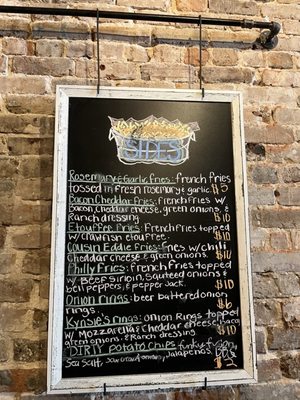 SIDES
Rosemary & Garlic Fries: french fries
tossed in fresh rosemary & garlic. $5
Bacon Cheddar Fries: french fries w/
Bacon, Cheddar cheese, green onions, &
Ranch dressing $10
Etouffee Fries: french fries topped
w/ crawfish etouffee. $10
Cousin Eddie Fries: fries w/ chili
Cheddar cheese & green onions. $10
Philly Fries: french fries topped
w/ Beef Sirloin, Sauteed onions &
bell peppers, & pepper Jack. $10
Onion rings: beer battered onion
rings. $6
Kynsie's rings: onion rings topped
w/ Mozzarella & Cheddar cheese,
green onions, & Ranch dressing $10
DIRTY potato chips funky fusion,
Sea Salt, Jalapeños, BBQ
$2